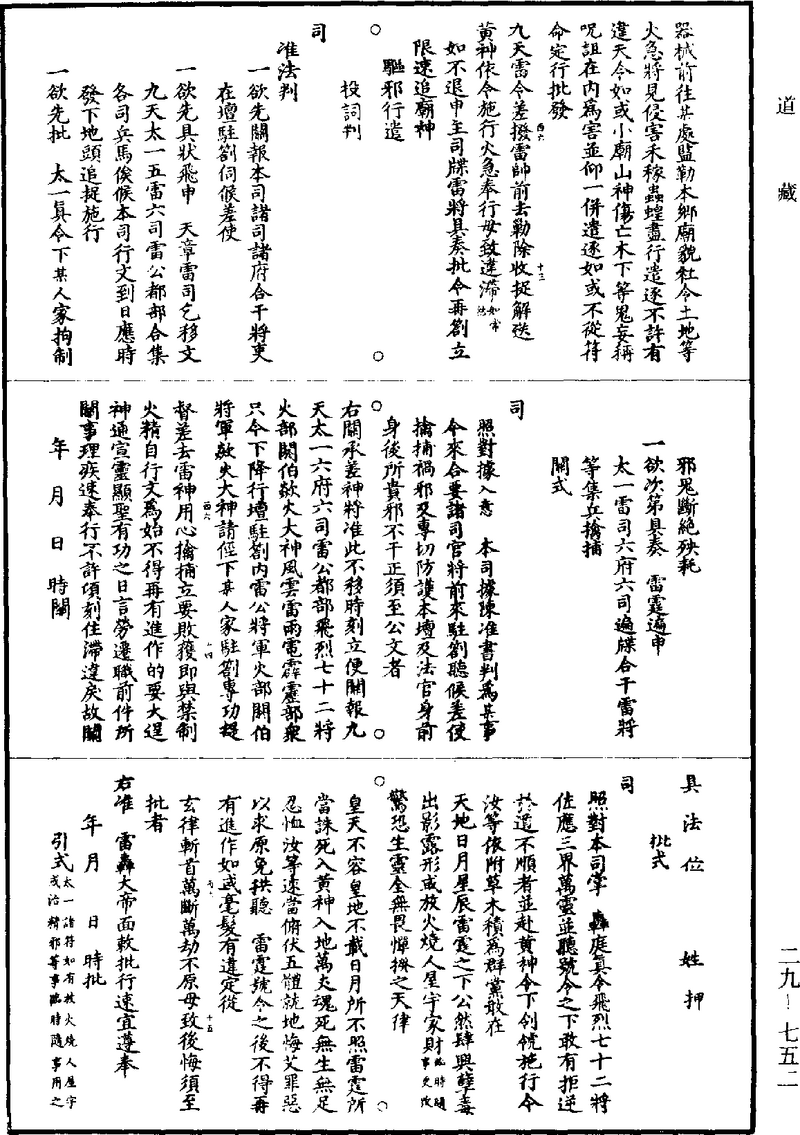 道藏
器械前往某處監勒本鄉廟貌社令土地等
火急將見侵害禾稼蟲蝗盡行遣逐不許有
違天令如或小廟山神傷亡木下等鬼妄稱
呪詛在內為害並仰一併遣逐如或不從符
命定行批發
九天雷令差撥雷帥前去勒除收捉解送
黃神依令施行火急奉行毋致違滯如常法
如不退申主司牒雷將具奏批令再劄立
限速追廟神
驅邪行遣
投詞判
司
准法判
一欲先關報本司諸司諸府合干將吏
在壇駐劄伺候差使
一欲先具狀飛申 天章雷司乞移文
九天太一五雷六司雷公都部合集
各司兵馬俟候本司行文到日應時
發下地頭追捉施行
一欲先批 太一真令下某人家拘制
邪鬼斷絕殃耗
一欲次第具奏 雷霆遍申
太一雷司六府六司遍牒合干雷將
等集兵擒捕
關式
司
照對據入意 本司據陳准書判為某事
令來合要諸司官將前來駐劄聽候差使
擒捕禍邪及專切防護本壇及法官身前
身後所貴邪不干正須至公文者
右關承差神將准此不移時刻立便關報九
天太一六府六司雷公都部飛烈七十二將
火部閼伯欻火大神風雲雷雨電霹靂部衆
只今下降行壇駐劄內雷公將軍火部閼伯
將軍欻火大神請徑下某人家駐劄專功提
督差去雷神用心擒捕立要敗獲即與禁制
火精自行文為始不得再有進作的要大逞
神通宣靈顯聖有功之日言勞遷職前件所
關事理疾速奉行不許傾刻住滯違戾故關
年 月 日 時關
具法位 姓 押
批式
司
照對本司掌 轟庭真令飛烈七十二將
佐應三界萬靈並聽號令之下敢有拒逆
於道不順者並赴黃神令下施行今
汝等依附草木積為群黨敢在
天地日月星辰雷霆之下公然肆興孽毒
出影露形或放火燒人屋宇家財臨時隨事更改
驚恐生靈全無畏憚揆之天律
皇天不容皇地不載日月所不照雷霆所
當誅死入黃神入地萬丈魂死無生無足
忍恤汝等速當俯伏五體就地悔艾罪惡
以求原免拱聽 雷霆號令之後不得再
有進作如或毫髮有違定從
玄律斬首萬斷萬劫不原毋致後悔須至
批者
右准 雷轟大帝面敕批行速宜遵奉
年 月 日 時批
引式太一諸符如有被火燒人屋宇或治精邪等事臨時隨事用之
二九—七五二